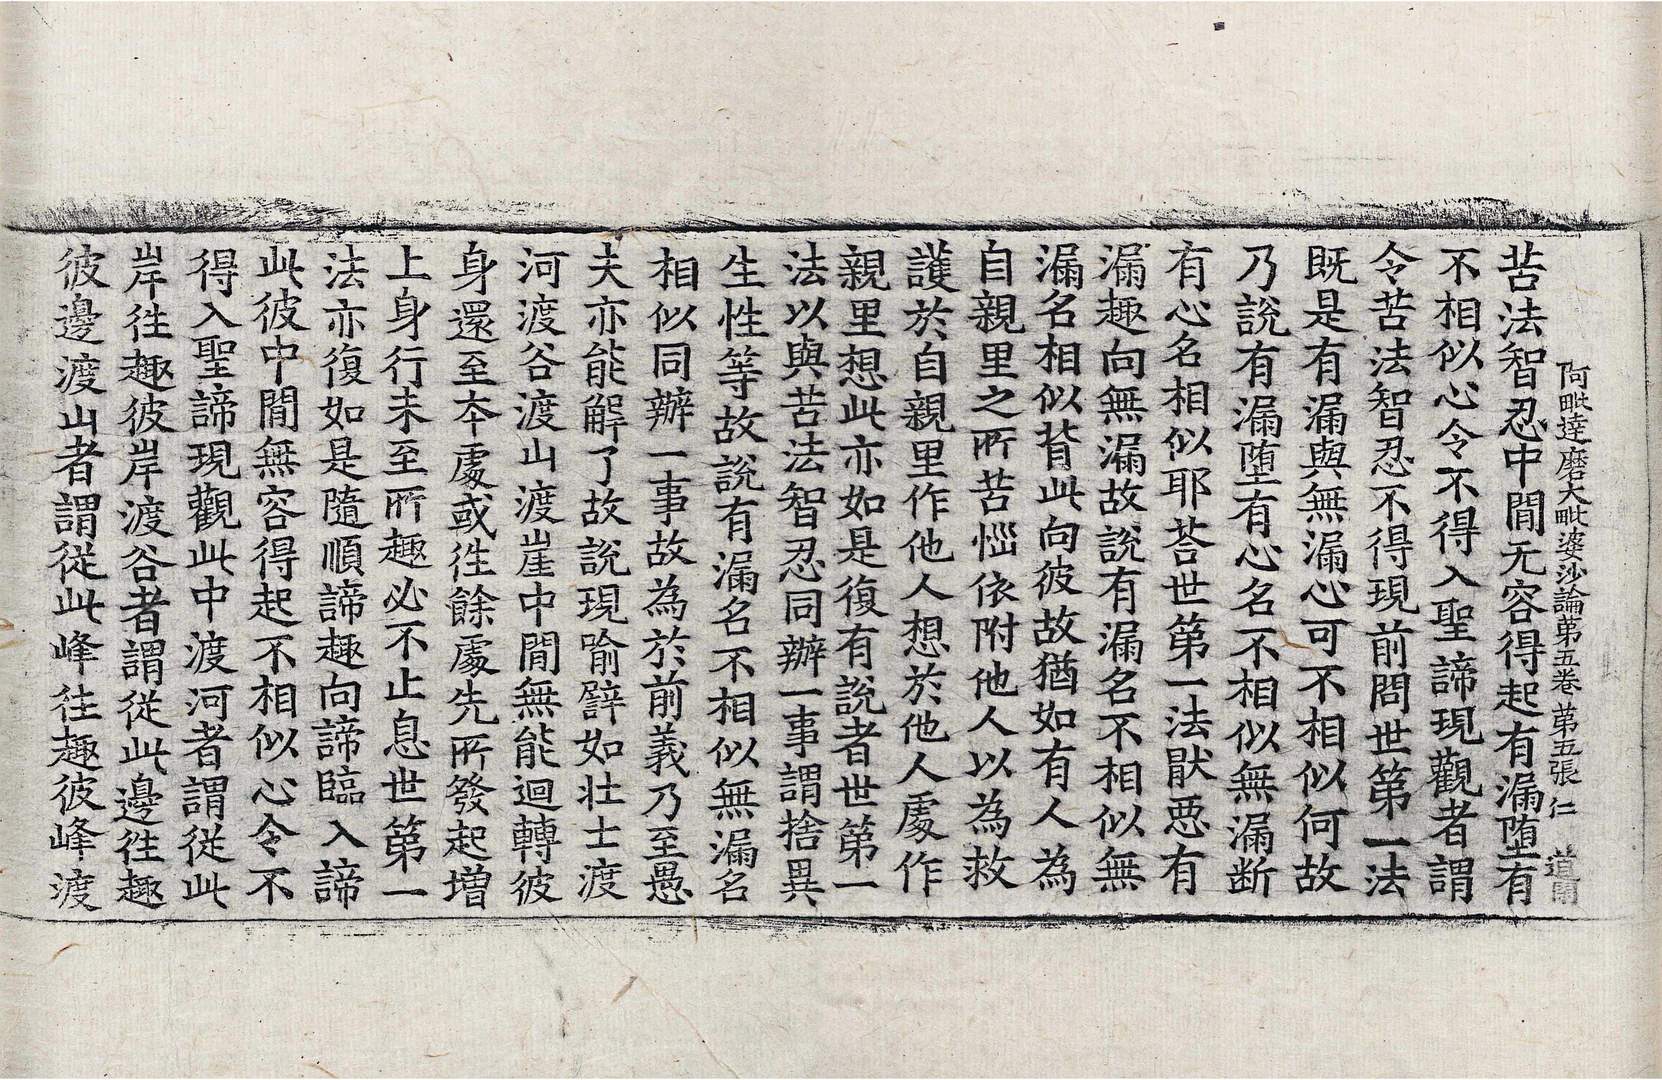 阿毗達磨大毗婆沙論第五卷 第五張 仁 道開
苦法智忍中閒无容得起有漏堕有
不相似心令不得入聖諦現觀者謂
令苦法智忍不得現前問世第一法
既是有漏與無漏心可不相似何故
乃說有漏堕有心名不相似無漏断
有心名相似耶荅世第一法猒恶有
漏趣向無漏故說有漏名不相似無
漏名相似背此向彼故猶如有人為
自親里之所苦惱依附他人以為救
護於自親里作他人想於他人處作
親里想此亦如是復有說者世第一
法以與苦法智忍同辦一事謂捨異
生性等故說有漏名不相似無漏名
相似同辦一事故為於前義乃至愚
夫亦能解了故說現喻譬如壮士渡
河渡谷渡山渡崖中閒無能迴轉彼
身還至夲處或徃餘處先所發起増
上身行未至所趣必不止息世第一
法亦復如是隨順諦趣向諦臨入諦
此彼中閒無容得起不相似心令不
得入聖諦現觀此中渡河者謂從此
岸徃趣彼岸渡谷者謂從此邊徃趣
彼邊渡山者謂從此峰徃趣彼峰渡